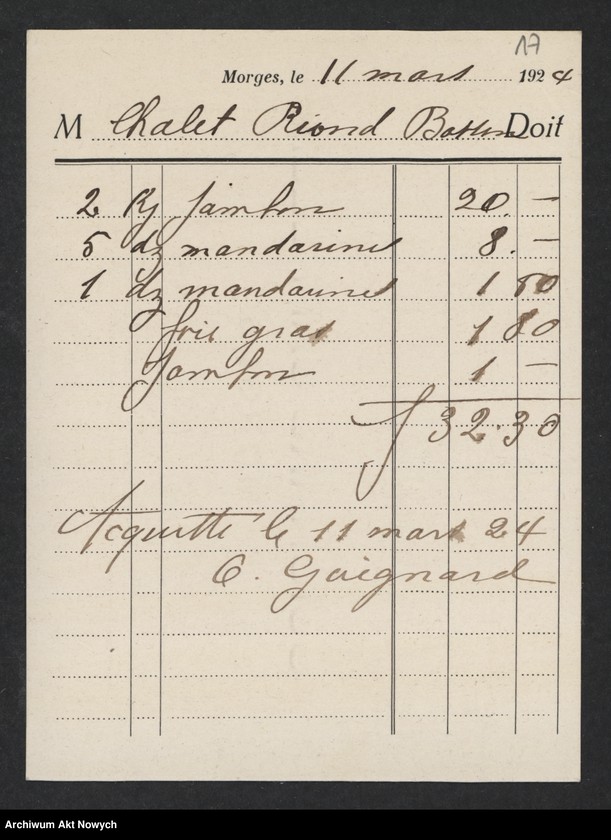 17
Morges, le 11 mars 1924
M Chalet Riond Bosson Doit
2 Kg Jambon 20. —
5 dz mandarines 8. —
1 dz mandarines 1 50
foie gras 1 80
Jambon 1 —
f 32.30
Acquitté le 11 mars 24
C. Goignard
Archiwum Akt Nowych